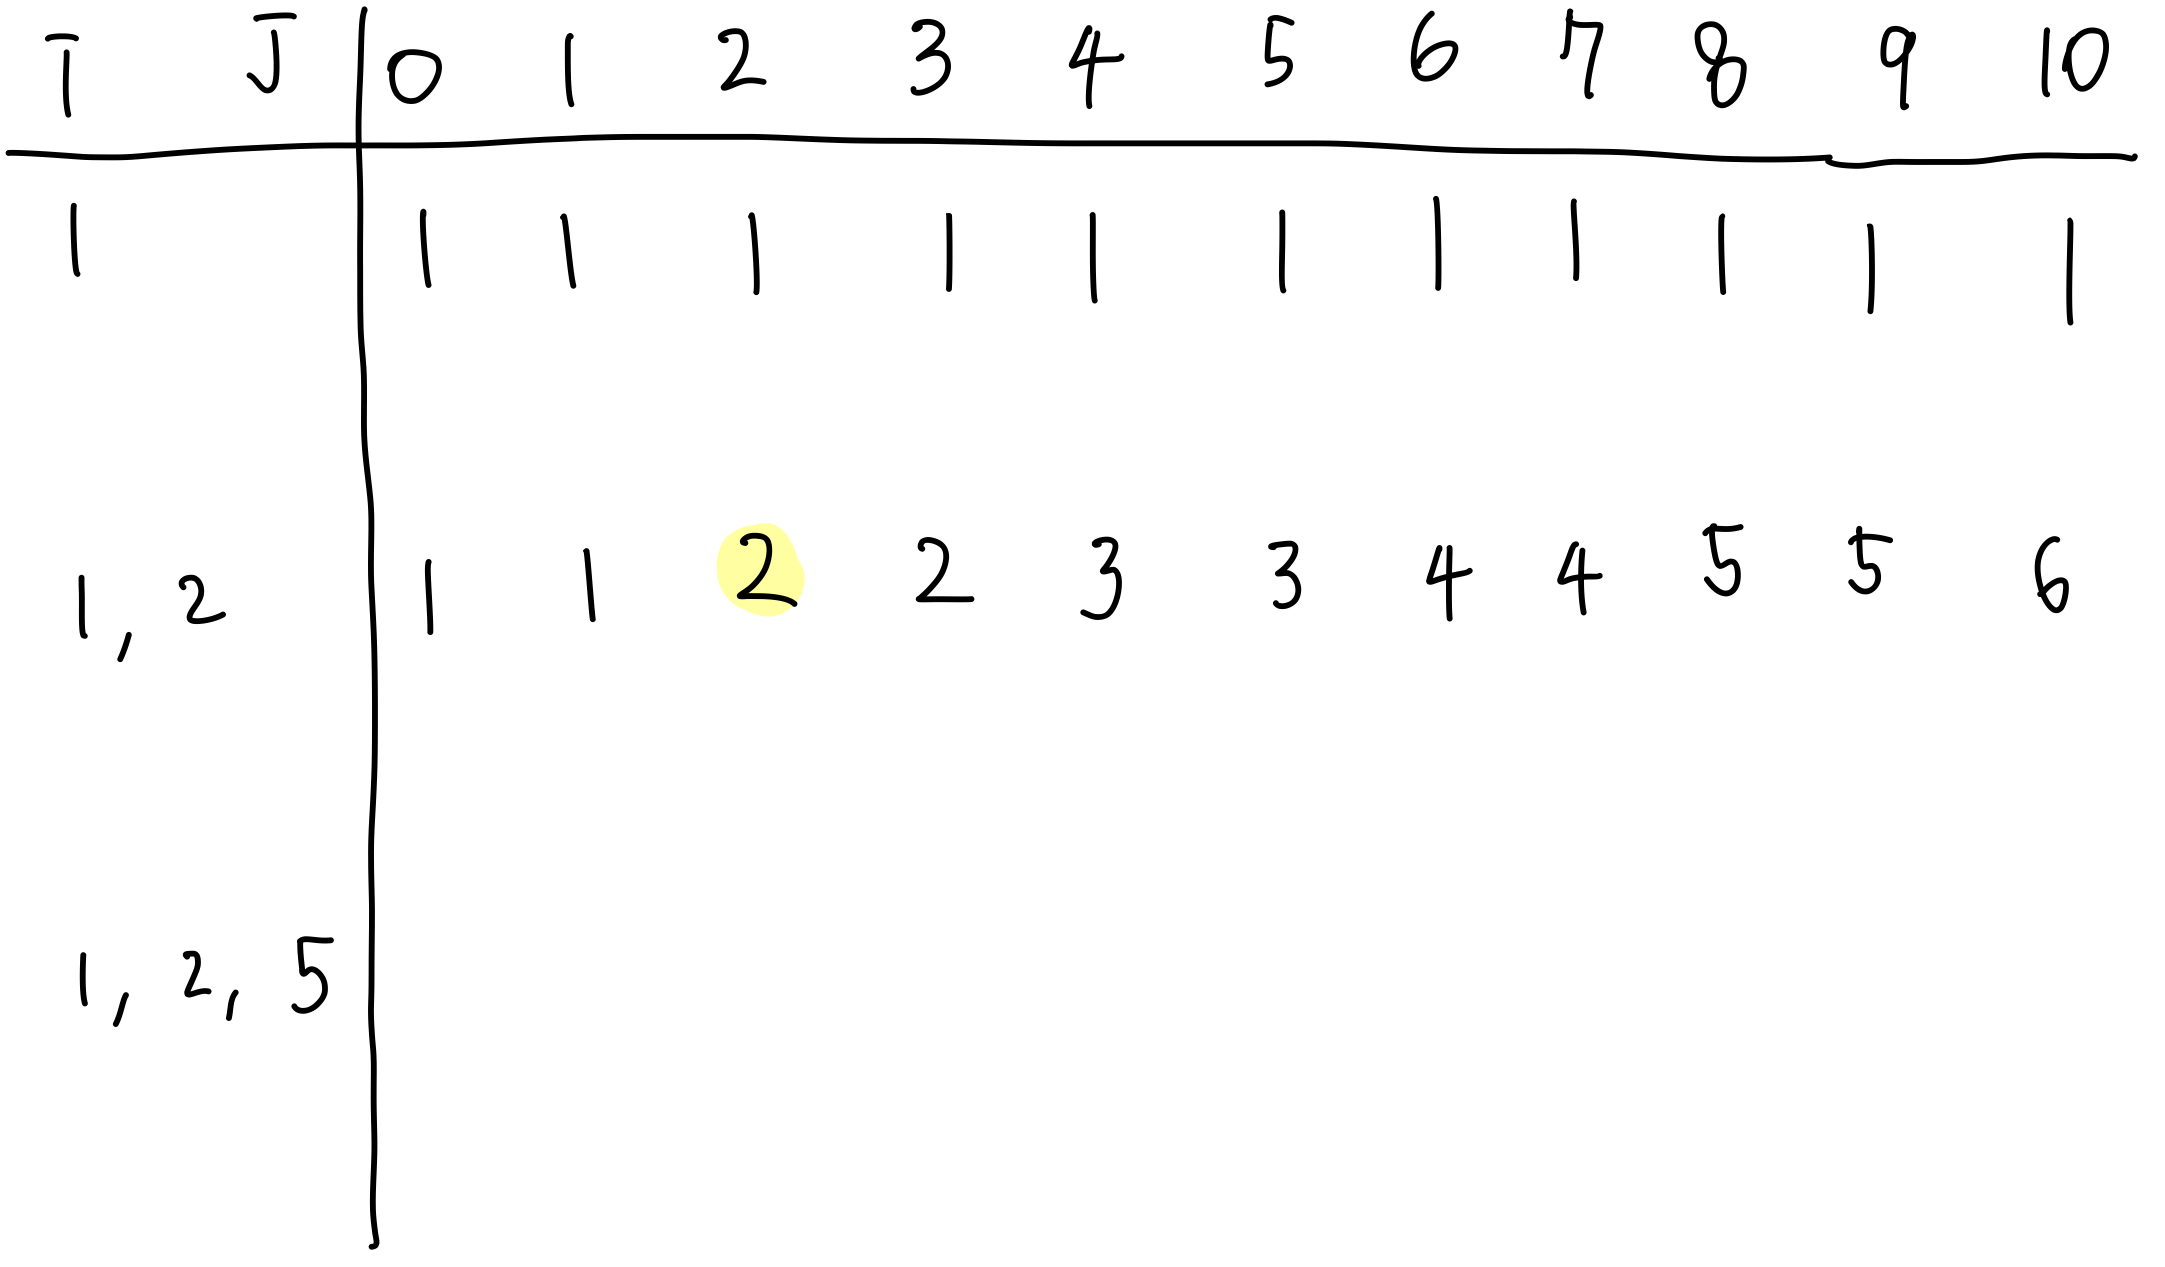 I J 0 1 2 3 4 5 6 7 8 9 10
1 1 1 1 1 1 1 1 1 1 1 1
1, 2 1 1 2 2 3 3 4 4 5 5 6
1, 2, 5